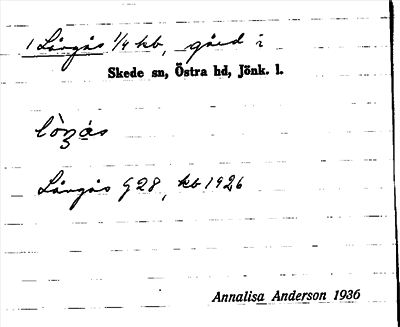 1 Långås 1/4 kb, gård i
Skede sn, Östra hd, Jönk. l.
Långås G28, kb 1926
Annalisa Anderson 1936